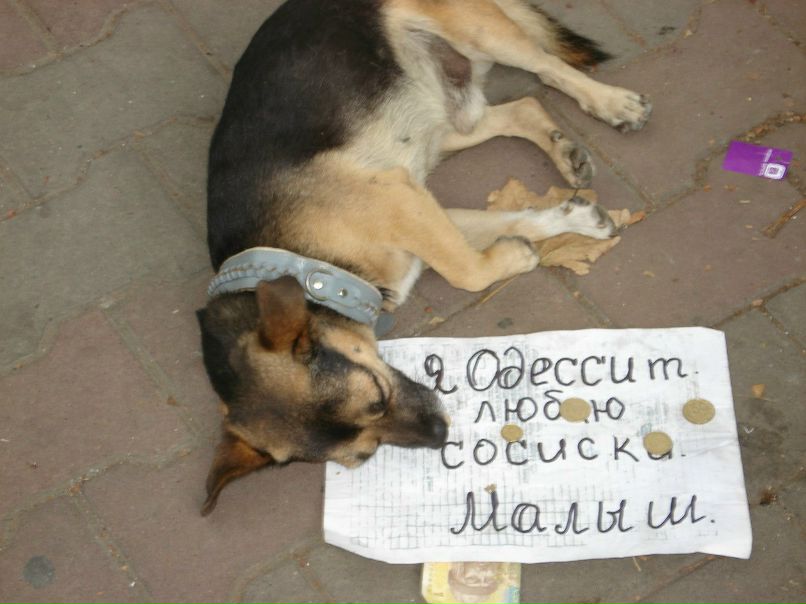 Я Одессит.
люблю
сосиски.
Малыш.